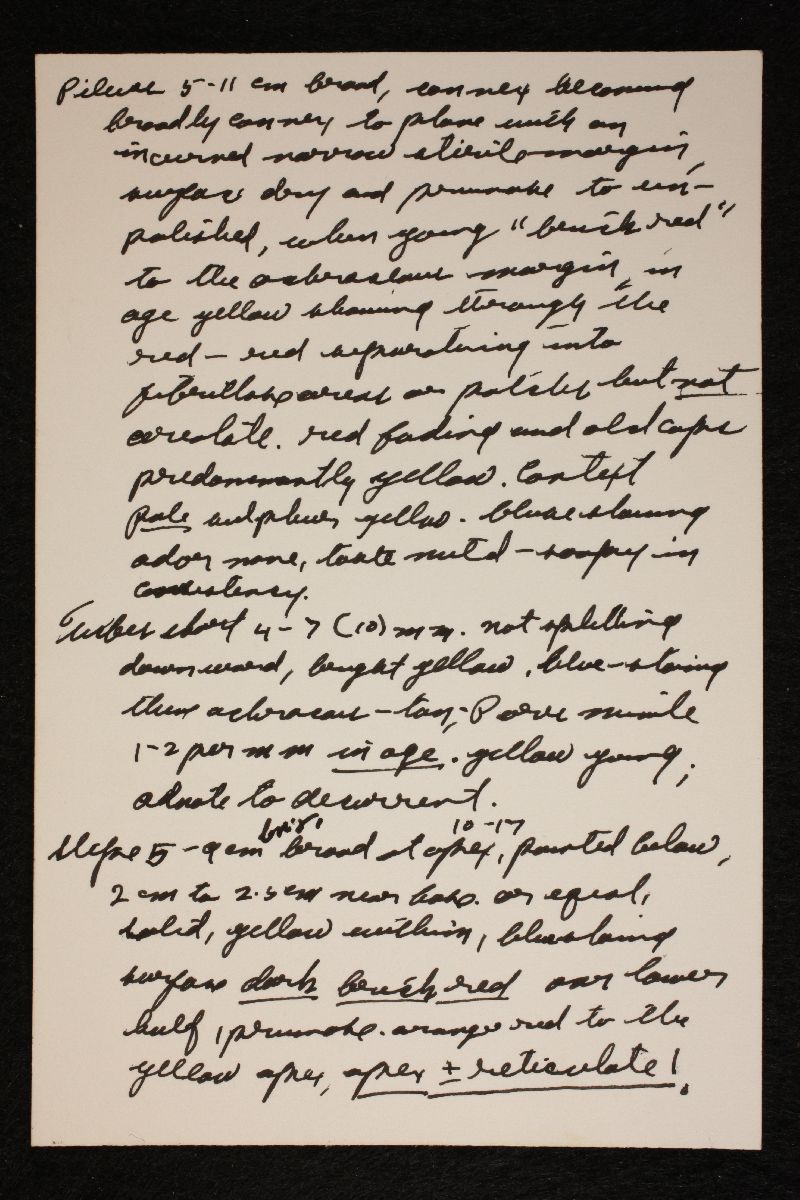 Pileus 5-11 cm broad, convex becoming
broadly convex to plane with an
incurved narrow sterile margin,
surface dry and pruinose to un-
polished, when young "brick red"
to the ochraceous margin, in
age yellow showing through the
red - red separating into
fibrillose areas or patches but not
areolate. red fading and old caps
predominantly yellow. Context
pale sulphur yellow. blue staining
odor none, taste mild - soapy in
consistency.
Tubes short 4-7 (10) mm. not splitting
downward, bright yellow, blue-staining
then ochraceous-tan; Pores minute
1-2 per mm in age. yellow young;
adnate to decurrent.
Stipe 5-9 cm long, 10-17 broad at apex, pointed below,
2 cm to 2.5 cm near base. or equal,
solid, yellow within, blue staining
surface dark brick red over lower
half, pruinose. orange red to the
yellow apex, apex ± reticulate!